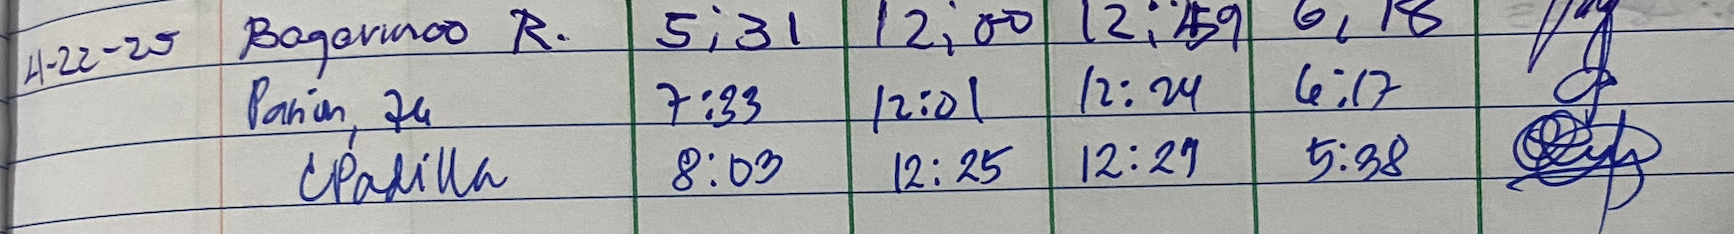 4-22-25 Bagarinoo R. 5:31 12:00 12:59 6:18
7:33 12:01 12:24 6:17
CPadilla 8:03 12:25 12:29 5:38